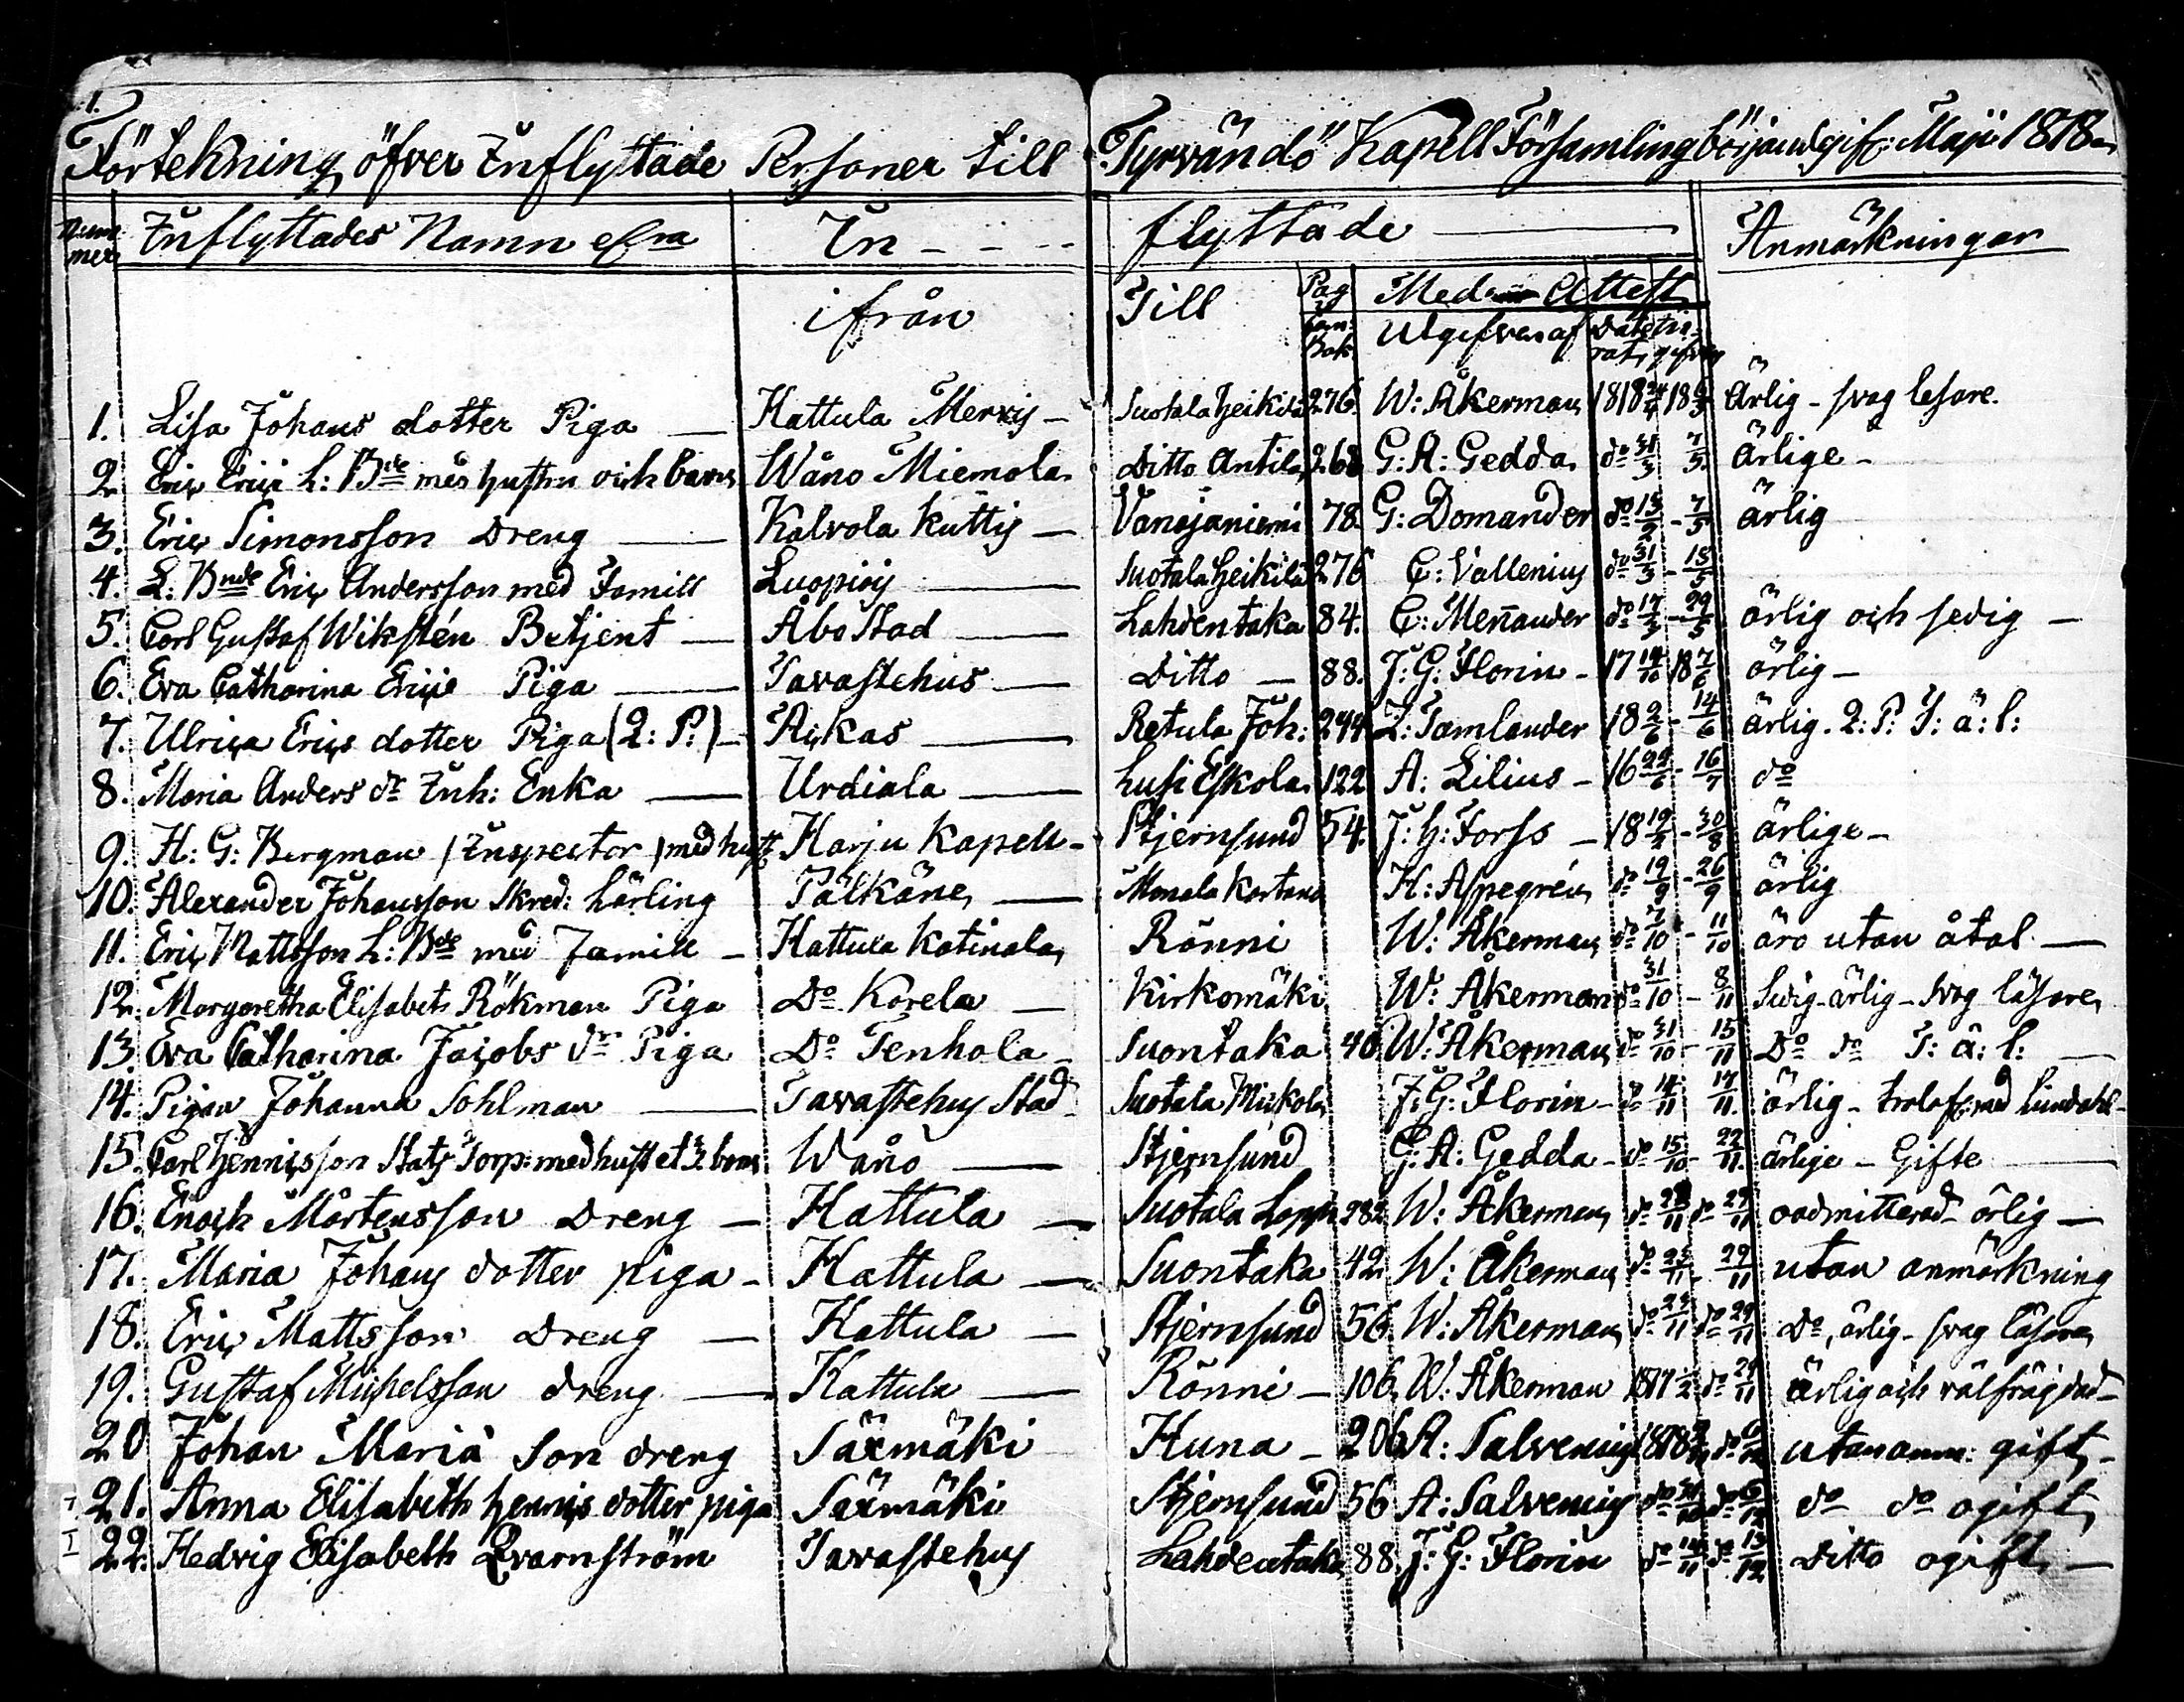 1.
Förtekning öfver Inflyttade Personer till Tyrvändö Kapell Församling börjandes if: Maji 1818
Num mer Inflyttades Namn In - - - flyttade Anmärkningar
ifrån Till Pag Med Attest
Utgifven af Date rat
1. Lisa Johans dotter Piga — Hattula Mervis — Suotala Heikilä 276. W: Åkerman 1818 24/4 18 Ärlig - svag lesare.
2. Eric Erici L: Bde med hustru och barn Wåno Miemola Ditto Antila 268 G: A: Gedda do 31/3 7/5. ärlige -
3. Eric Simonsson Dreng — Kalvola Kuttis — Vanajaniemi 78. G: Domander do 15/2 - 7/5 ärlig
4. L: Bnde Eric Andersson med Famill Luopiois — Suotala Heikilä 276 C: Vallenius do 31/3 - 15/5
5. Carl Gustaf Wikstén Betjent — Åbo Stad — Lahdentaka 84. C: Menander do 17/3 - 29/5 ärlig och sedig —
6. Eva Catharina Erici Piga — Tavastehus — Ditto — 88. J: G: Florin - 17 14/10 18 7/6 ärlig —
7. Ulrica Erics dotter Piga (2: P:) — Ackas — Retula Joh: 244 Z: Tamlander 18 2/6 - 14/6 ärlig. 2: P: T: ä: l:
8. Maria Anders dr Inh: Enka — Urdiala — Lusi Eskola 122 A: Lilius - 16 22/6 - 16/7 do
9. H: G: Bergman /Inspector/ med hust: Harju Kapell - Stjernsund 54. J: H: Forss — 18 19/2 - 30/8 ärlige -
10. Alexander Johansson Skred: Lärling Pälkäne — Monala Kartano H: Aspegrén do 19/9 - 26/9 ärlig
11. Eric Mattsson L: Bde med Famill — Hattula Katinala Rönni W: Åkerman do 7/10 - 11/10 äro utan åtal —
12. Margaretha Elisabeth Rökman Piga Do Korela — Kirkomäki W: Åkerman do 31/10 - 8/11 Sedig - ärlig - svag läsare
13. Eva Catharina Jacobs dr Piga Do Tenhola — Suontaka 40 W: Åkerman do 31/10 - 15/11 Do do T: ä: l: —
14. Pigan Johanna Sohlman — Tavastehus Stad Suotala Mickola J: G: Florin - do 14/11 17/11. ärlig - trolof: med Lindahl -
15. Carl Henricsson Stats Torp: med hust et 3. barn Wåno — Stjernsund G: A: Gedda - do 15/10 - 22/11. ärlige - Gifte —
16. Enoch Mårtensson Dreng — Hattula — Suotala Loppi 282 W: Åkerman do 28/11 do 29/11 oadmitterad - ärlig —
17. Maria Johans dotter piga - Hattula — Suontaka 42 W: Åkerman do 23/11 - 29/11 utan anmärkning
18. Eric Mattsson Dreng — Hattula — Stjernsund 56 W: Åkerman do 23/11 do 29/11 Do, ärlig - svag läsare
19. Gustaf Michelsson dreng — Hattula — Rönni — 106 W: Åkerman 1817 do 29/11 ärlig och välfrägdad -
20 Johan Maria son dreng Säxmäki Huna - 206 A: Salvenius 1818 do 6/12 utan anm: gift -
21. Anna Elisabeth Henrics dotter piga Säxmäki Stjernsund 56 A: Salvenius do do 6/12 do do ogift
22. Hedvig Elisabeth Qvarnström Tavastehus Lahdentaka 88 J: G: Florin do 14/11 do 13/12 Ditto ogift —